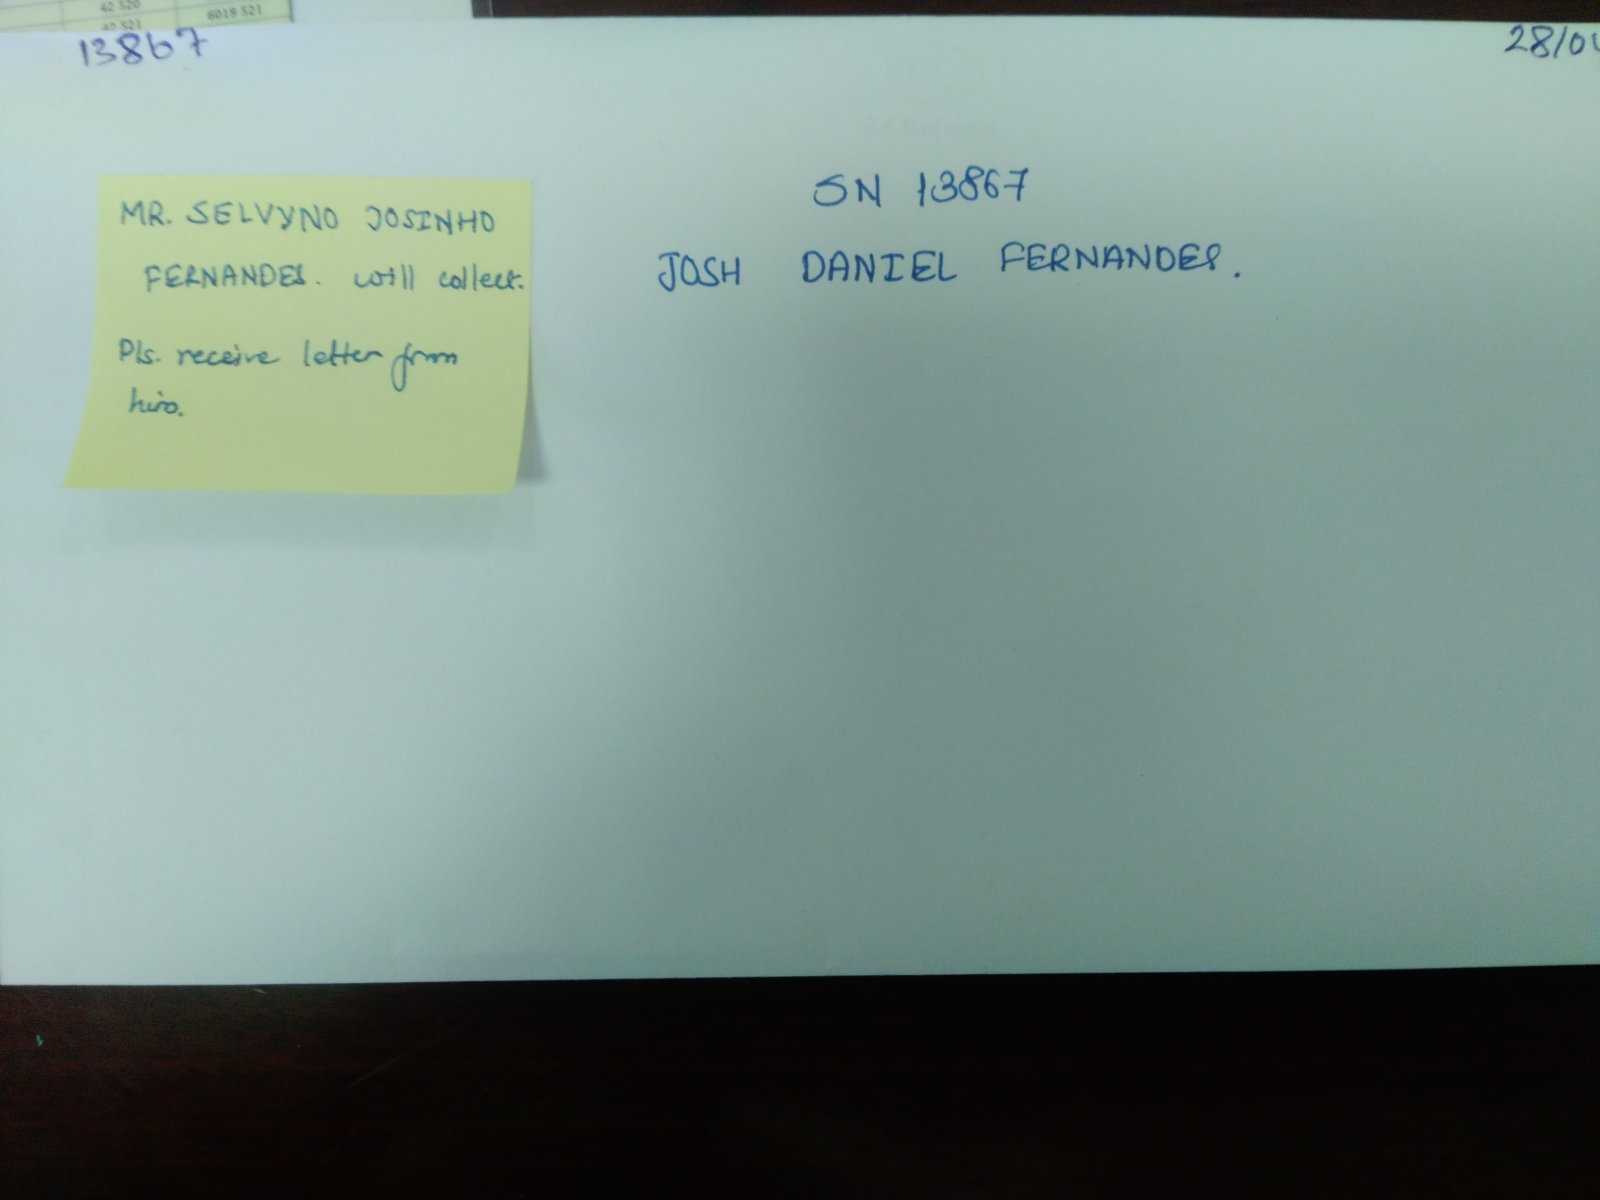 42 520
6019 521
42 521
13867
28/04
MR. SELVYNO JOSINHO
FERNANDES. will collect.
Pls. receive letter from
him.
SN 13867
JOSH DANIEL FERNANDES.